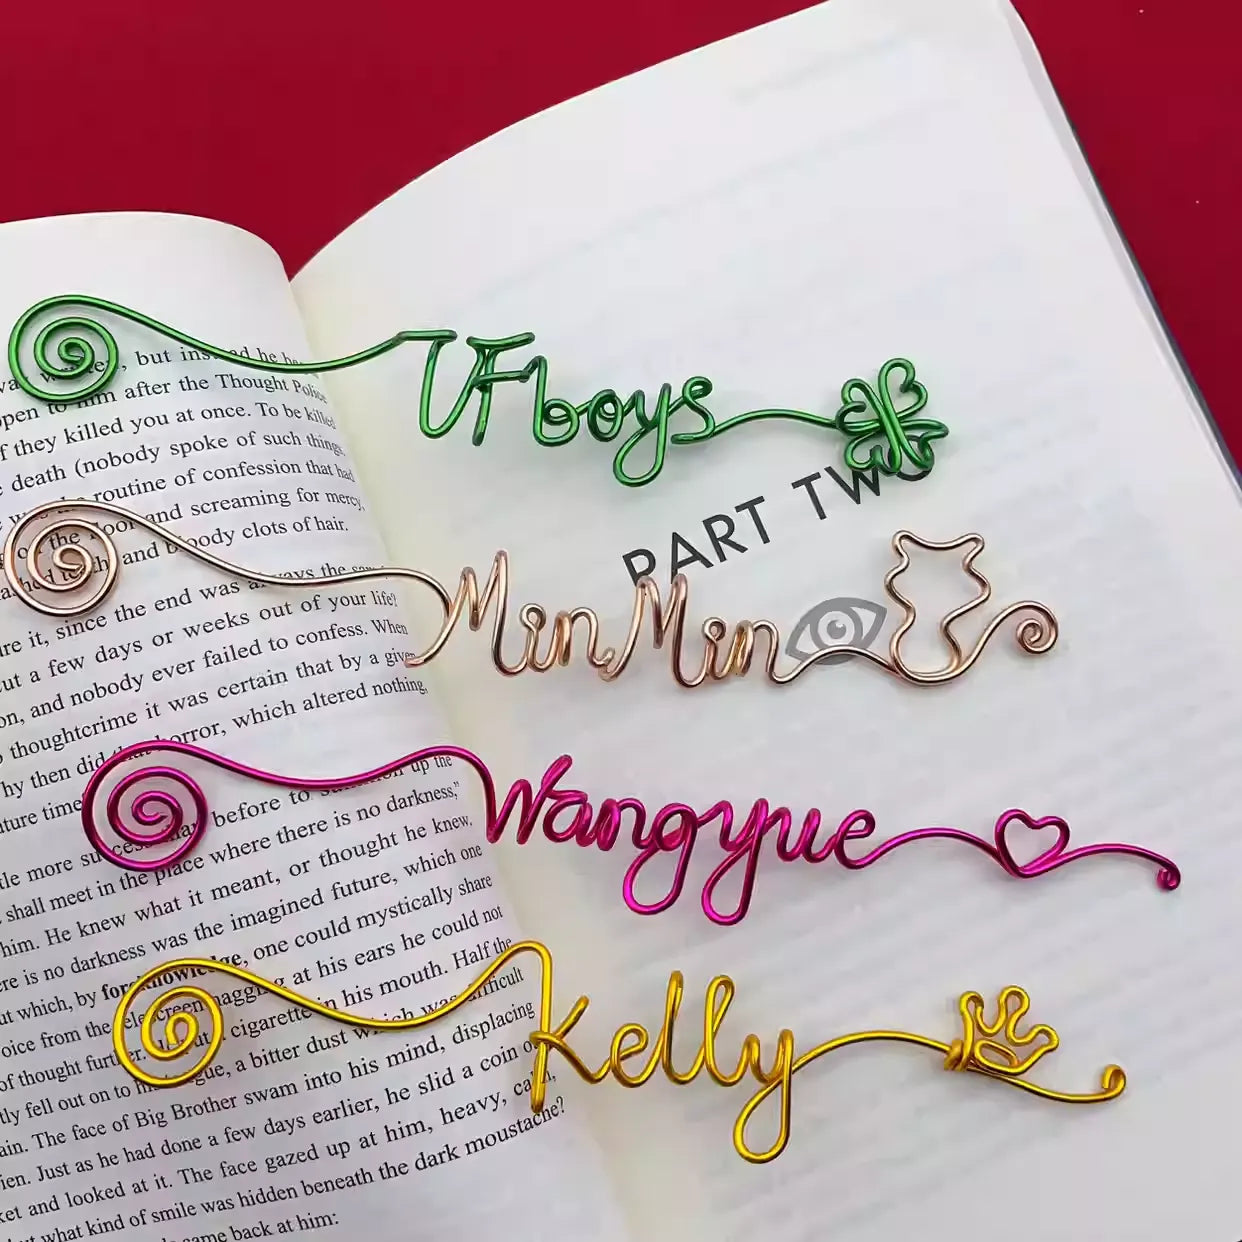 , but instead he
open to him after the Thought Police
f they killed you at once. To be killed
death (nobody spoke of such things,
routine of confession that had
the floor and screaming for mercy,
and bloody clots of hair.
re it, since the end was always the same
ut a few days or weeks out of your life?
on, and nobody ever failed to confess. When
thoughtcrime it was certain that by a given
hy then did that horror, which altered nothing,
ture time
up the
before to
tle more successful than
shall meet in the place where there is no darkness,"
him. He knew what it meant, or thought he knew.
ere is no darkness was the imagined future, which one
ut which, by foreknowledge, one could mystically share
oice from the telescreen nagging at his ears he could not
of thought further. He put a cigarette in his mouth. Half the
tly fell out on to his tongue, a bitter dust which was difficult
ain. The face of Big Brother swam into his mind, displacing
ien. Just as he had done a few days earlier, he slid a coin
ket and looked at it. The face gazed up at him, heavy, calm,
ut what kind of smile was hidden beneath the dark moustache?
came back at him:
PART TWO
UFboys
MinMin
Wangyue
Kelly